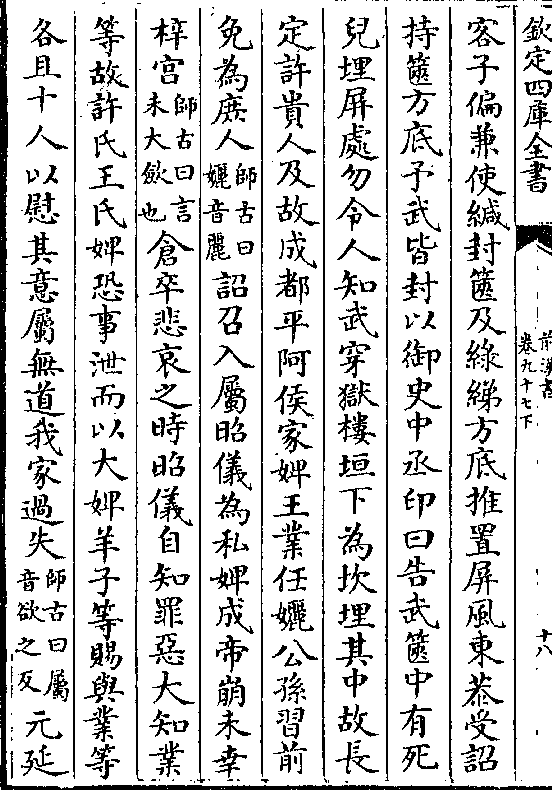 欽定四庫全書
前漢書
卷九十七下
十八
客子偏兼使緘封篋及綠綈方底推置屏風東恭受詔
持篋方底予武皆封以御史中丞印曰告武篋中有死
兒埋屏處勿令人知武穿獄樓垣下為坎埋其中故長
定許貴人及故成都平阿侯家婢王業任孋公孫習前
免為庶人師古曰孋音麗詔召入屬昭儀為私婢成帝崩未幸
梓宫師古曰言未大歛也倉卒悲哀之時昭儀自知罪惡大知業
等故許氏王氏婢恐事泄而以大婢羊子等賜與業等
各且十人以慰其意屬無道我家過失師古曰屬音欲之反元延